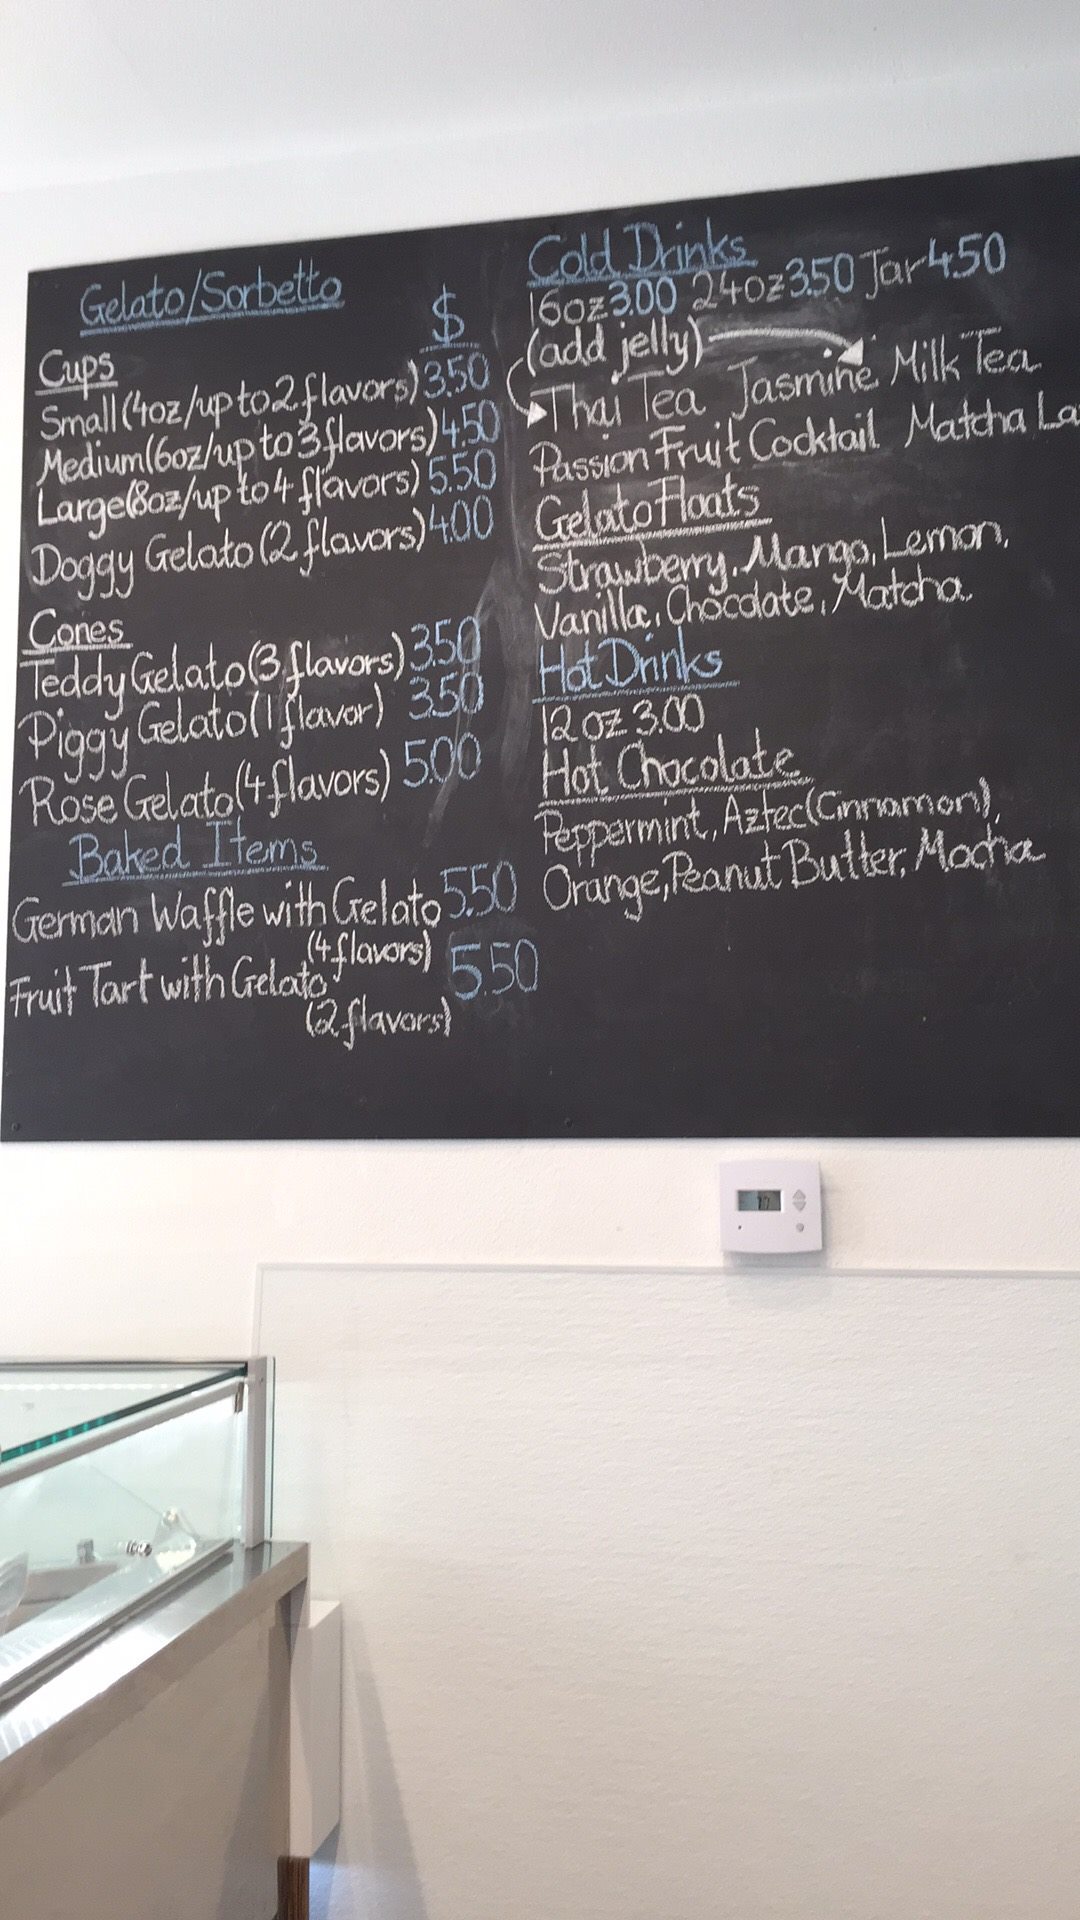 Gelato/Sorbetto
$
Cups
Small (4oz/up to 2 flavors) 3.50
Medium (6oz/up to 3 flavors) 4.50
Large (8oz/up to 4 flavors) 5.50
Doggy Gelato (2 flavors) 4.00
Cones
Teddy Gelato (3 flavors) 3.50
Piggy Gelato (1 flavor) 3.50
Rose Gelato (4 flavors) 5.00
Baked Items
German Waffle with Gelato 5.50
(4 flavors)
Fruit Tart with Gelato 5.50
(2 flavors)
Cold Drinks
16oz 3.00 24oz 3.50 Jar 4.50
(add jelly)
Thai Tea Jasmine Milk Tea
Passion Fruit Cocktail Matcha La
Gelato Floats
Strawberry, Mango, Lemon,
Vanilla, Chocolate, Matcha
Hot Drinks
12 oz 3.00
Hot Chocolate
Peppermint, Aztec (Cinnamon),
Orange, Peanut Butter, Mocha
77